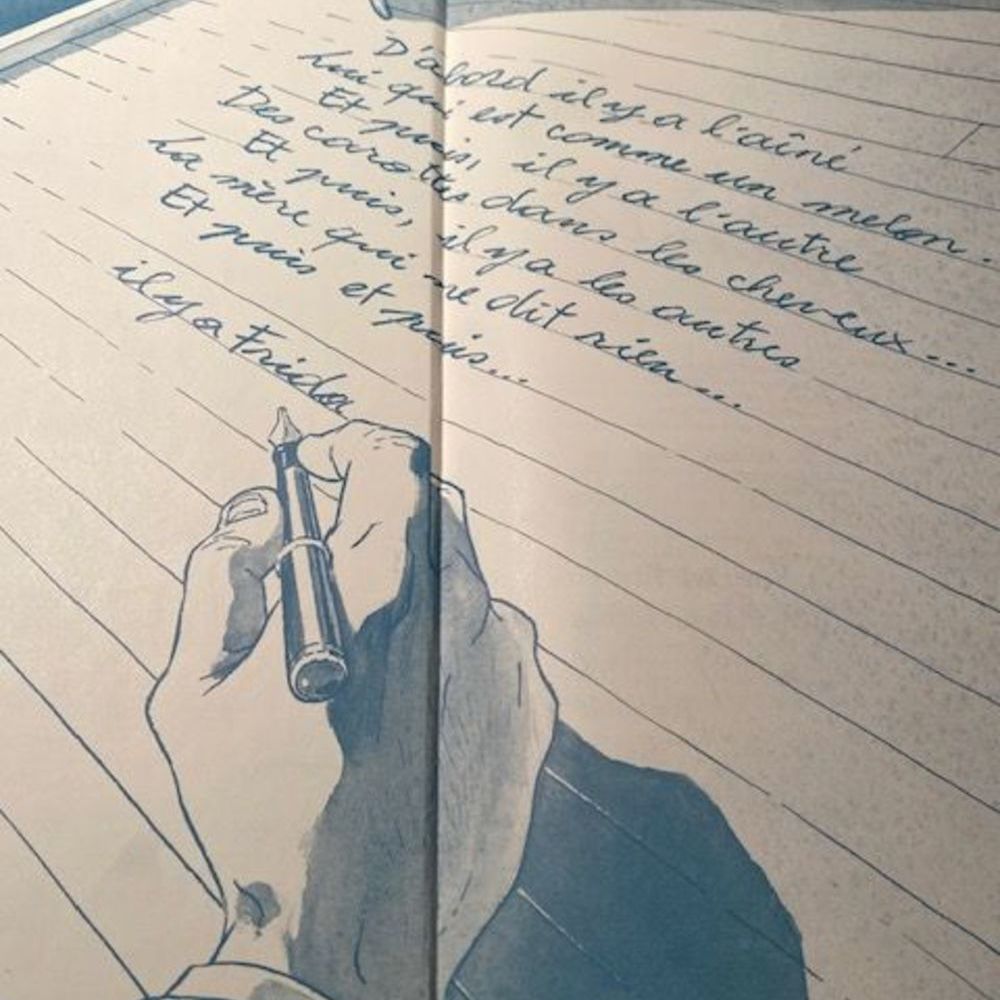 D'abord il y a l'aîné
Lui qui est comme un melon.
Et puis, il y a l'autre
Des carottes dans les cheveux...
Et puis, il y a les autres
La mère qui ne dit rien...
Et puis et puis...
il y a Frida